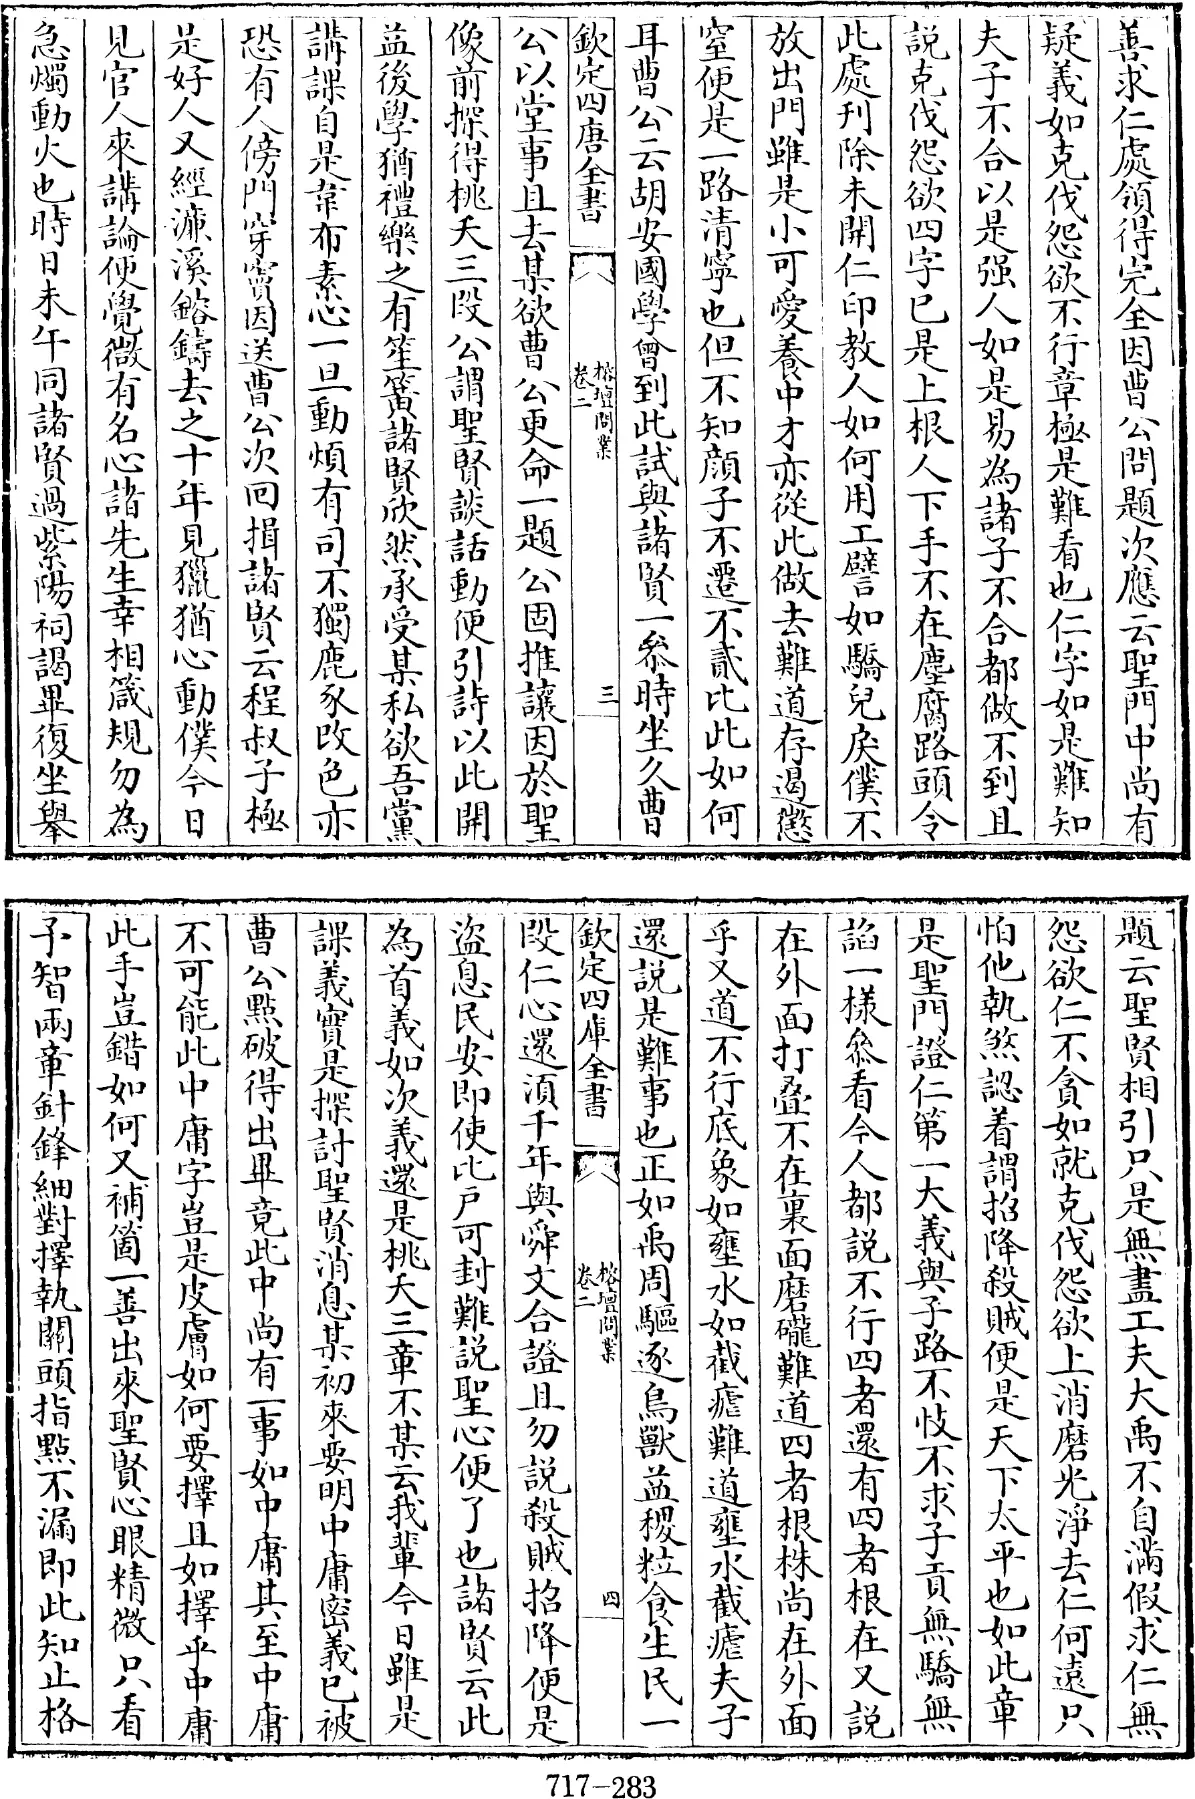 善求仁處領得完全因曹公問題次應云聖門中尚有
疑義如克伐怨欲不行章極是難看也仁字如是難知
夫子不合以是强人如是易為諸子不合都做不到且
説克伐怨欲四字已是上根人下手不在塵腐路頭令
此處刋除未開仁印教人如何用工譬如驕兒戾僕不
放出門雖是小可愛養中才亦從此做去難道存遏懲
窒便是一路清寧也但不知顔子不遷不貳比此如何
耳曹公云胡安國學曾到此試與諸賢一叅時坐久曹
欽定四庫全書
榕壇問業
卷二
三
公以堂事且去某欲曹公更命一題公固推讓因於聖
像前探得桃夭三段公謂聖賢談話動便引詩以此開
益後學猶禮樂之有笙簧諸賢欣然承受某私欲吾黨
講課自是韋布素心一旦動煩有司不獨鹿豕改色亦
恐有人傍門穿竇因送曹公次回揖諸賢云程叔子極
是好人又經濂溪鎔鑄去之十年見獵猶心動僕今日
見官人來講論便覺微有名心諸先生幸相箴規勿為
急燭動火也時日未午同諸賢過紫陽祠謁畢復坐舉
題云聖賢相引只是無盡工夫大禹不自滿假求仁無
怨欲仁不貪如就克伐怨欲上消磨光淨去仁何遠只
怕他執煞認着謂招降殺賊便是天下太平也如此章
是聖門證仁第一大義與子路不忮不求子貢無驕無
諂一樣叅看今人都説不行四者還有四者根在又説
在外面打疊不在裏面磨礲難道四者根株尚在外面
乎又道不行底象如壅水如截瘧難道壅水截瘧夫子
還説是難事也正如禹周驅逐鳥獸益稷粒食生民一
欽定四庫全書
榕壇問業
卷二
四
段仁心還須千年與舜文合證且勿説殺賊招降便是
盜息民安即使比戸可封難説聖心便了也諸賢云此
為首義如次義還是桃夭三章不某云我輩今日雖是
課義實是探討聖賢消息某初來要明中庸密義已被
曹公點破得出畢竟此中尚有一事如中庸其至中庸
不可能此中庸字豈是皮膚如何要擇且如擇乎中庸
此手豈錯如何又補箇一善出來聖賢心眼精微只看
予智兩章針鋒細對擇執關頭指點不漏即此知止格
717-283